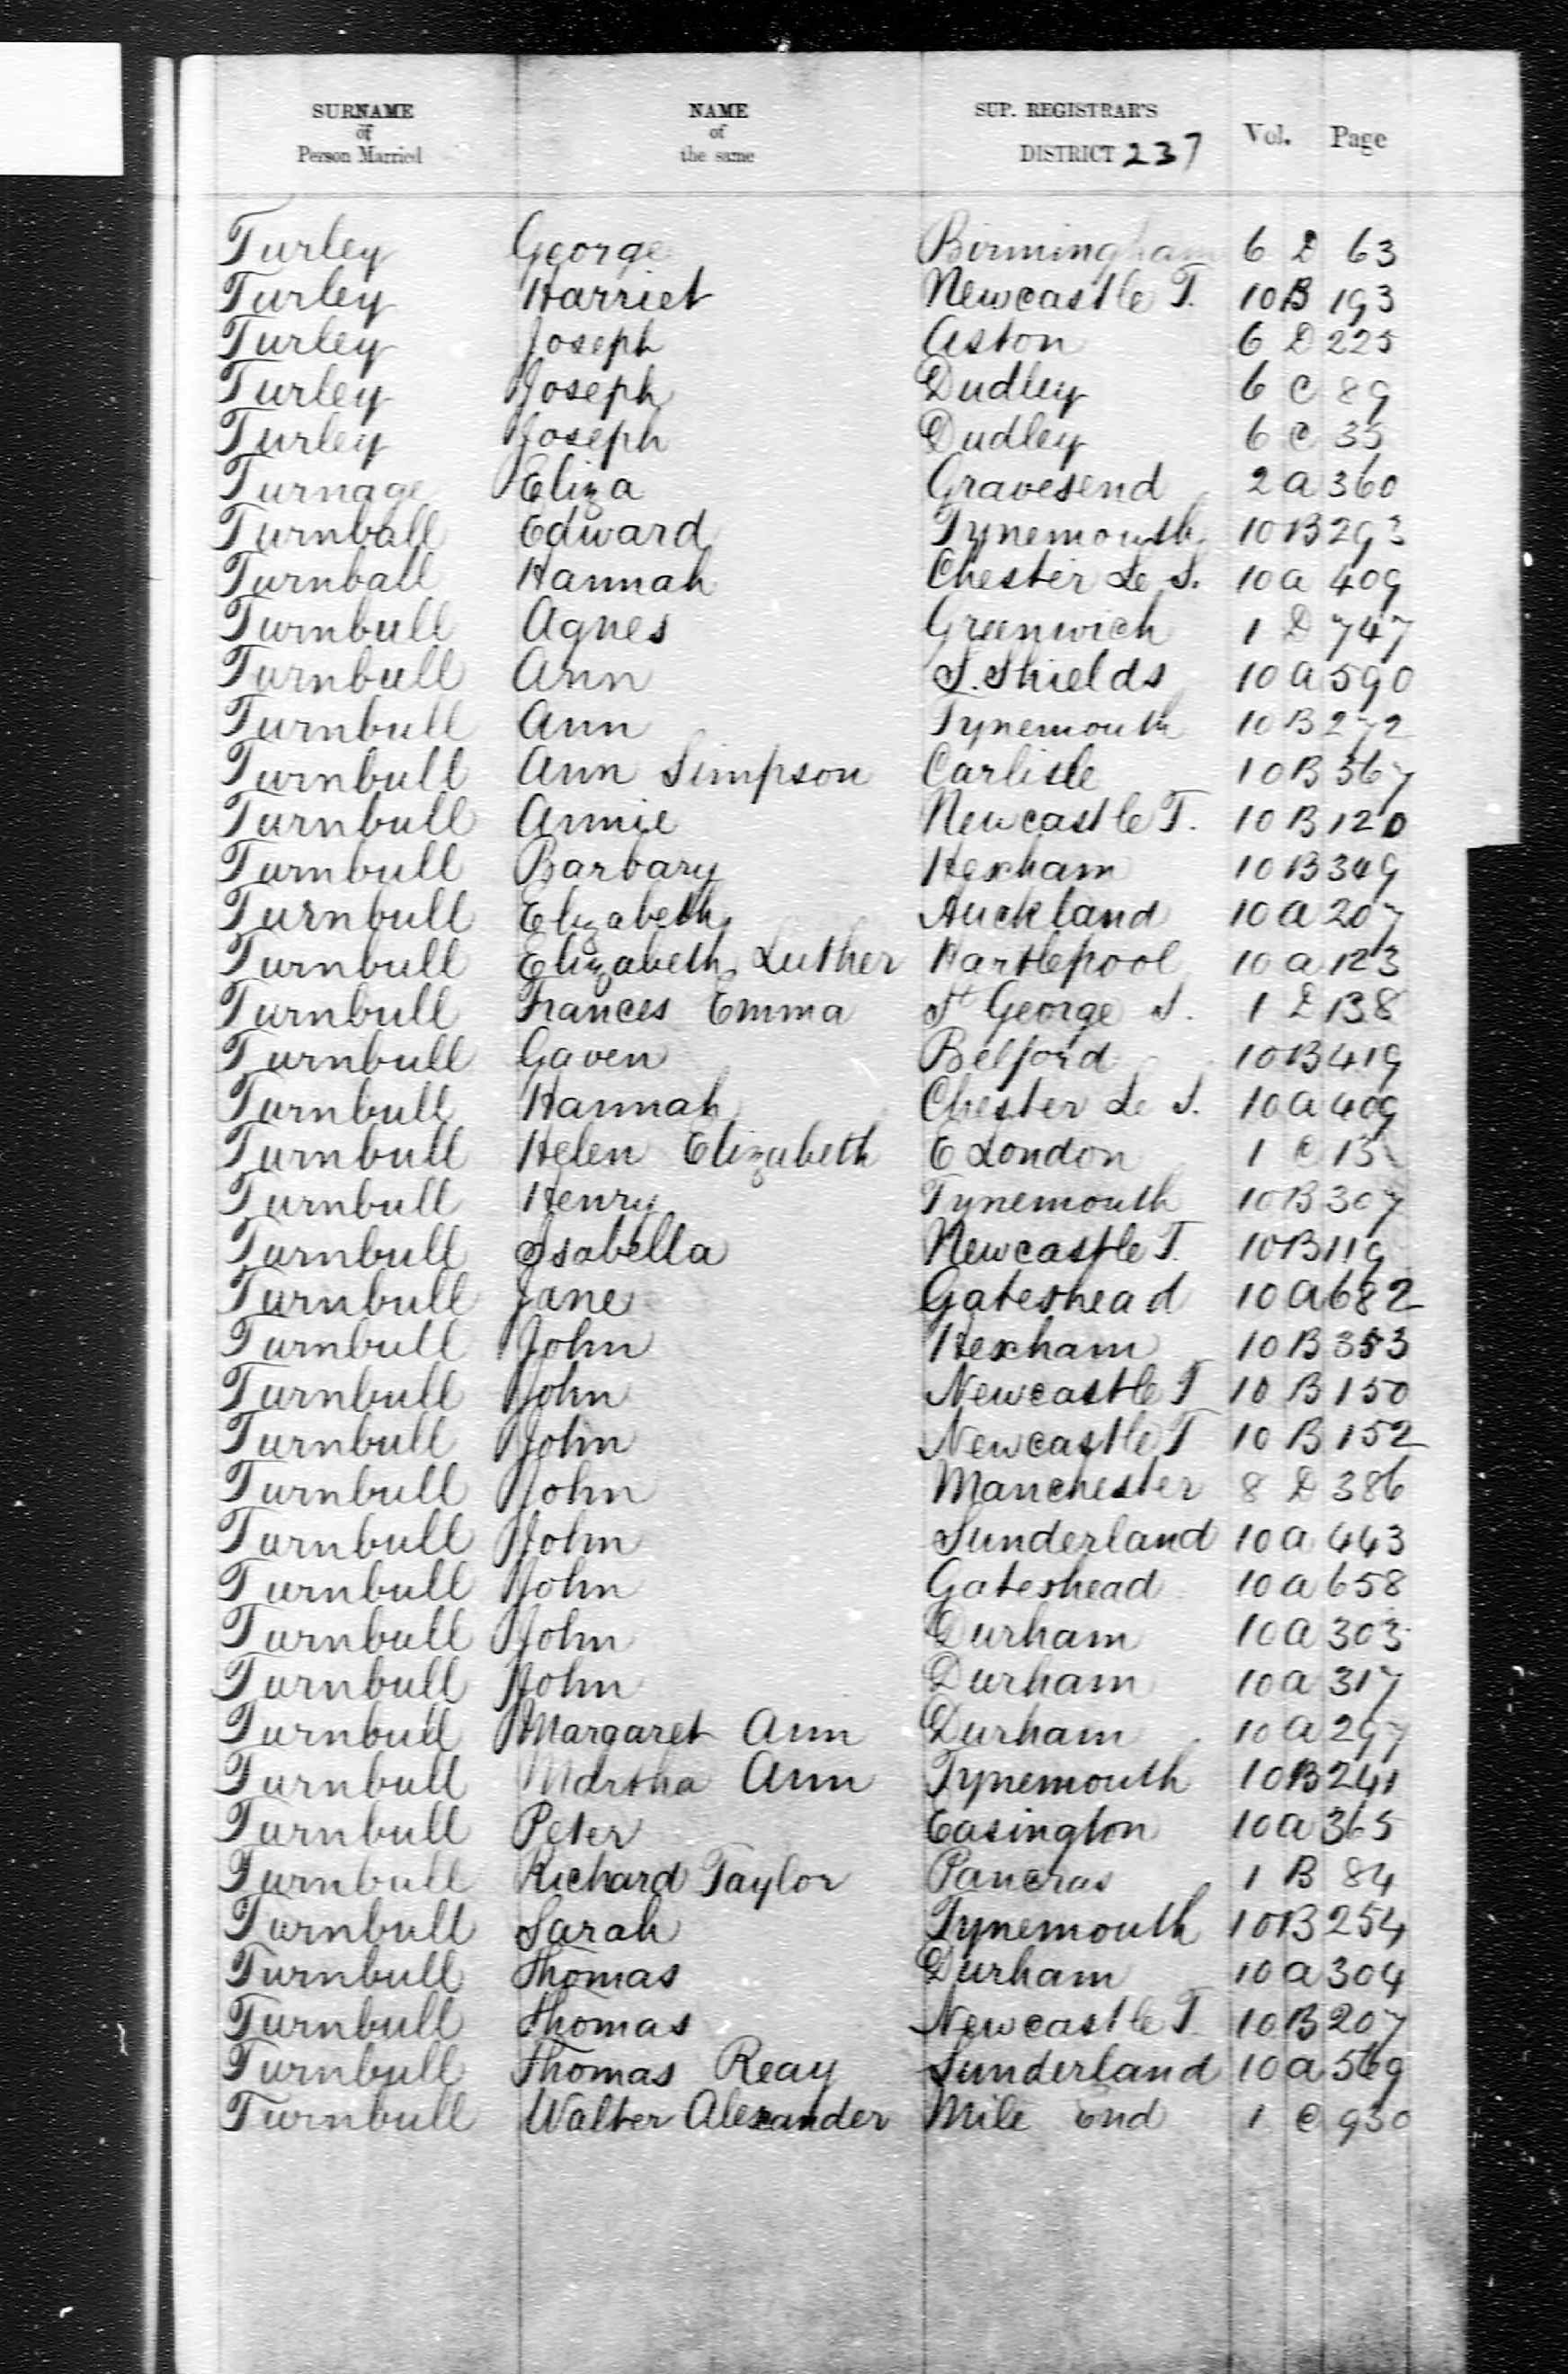 SURNAME of Person Married NAME of the same SUP. REGISTRAR'S DISTRICT 237 Vol. Page
Turley George Birmingham 6 D 63
Turley Harriet Newcastle T. 10 B 193
Turley Joseph Aston 6 D 225
Turley Joseph Dudley 6 C 89
Turley Joseph Dudley 6 C 35
Turnage Eliza Gravesend 2 a 360
Turnball Edward Tynemouth 10 B 293
Turnball Hannah Chester Le S. 10 a 409
Turnbull Agnes Greenwich 1 D 747
Turnbull Ann S. Shields 10 a 590
Turnbull Ann Tynemouth 10 B 272
Turnbull Ann Simpson Carlisle 10 B 567
Turnbull Annie Newcastle T. 10 B 120
Turnbull Barbary Hexham 10 B 349
Turnbull Elizabeth Auckland 10 a 207
Turnbull Elizabeth Luther Hartlepool 10 a 123
Turnbull Frances Emma St George S. 1 D 138
Turnbull Gaven Belford 10 B 419
Turnbull Hannah Chester Le S. 10 a 409
Turnbull Helen Elizabeth E London 1 C
Turnbull Henry Tynemouth 10 B 307
Turnbull Isabella Newcastle T. 10 B 119
Turnbull Jane Gateshead 10 a 682
Turnbull John Hexham 10 B 353
Turnbull John Newcastle T 10 B 150
Turnbull John Newcastle T 10 B 152
Turnbull John Manchester 8 D 386
Turnbull John Sunderland 10 a 443
Turnbull John Gateshead 10 a 658
Turnbull John Durham 10 a 303
Turnbull John Durham 10 a 317
Turnbull Margaret Ann Durham 10 a 297
Turnbull Martha Ann Tynemouth 10 B 241
Turnbull Peter Easington 10 a 365
Turnbull Richard Taylor Pancras 1 B 84
Turnbull Sarah Tynemouth 10 B 254
Turnbull Thomas Durham 10 a 304
Turnbull Thomas Newcastle T. 10 B 207
Turnbull Thomas Reay Sunderland 10 a 569
Turnbull Walter Alexander Mile End 1 C 930